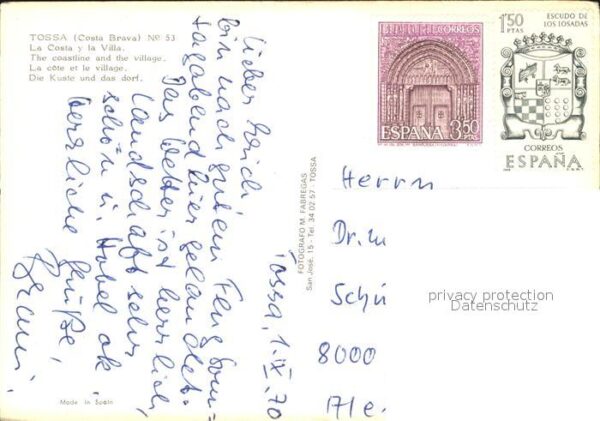 TOSSA (Costa Brava) Nº 53
La Costa y la Villa.
The coastline and the village.
La côte et le village.
Die Kuste und das dorf.
Tossa, 1.IX.70
Lieber Erich
bin nach gutem Flug Sonn-
tagabend hier gelandet.
Das Wetter ist herrlich,
Landschaft sehr
schön u. Hotel ok.
Herzliche Grüße,
FOTOGRAFO M. FABREGAS
San José, 15 - Tel. 34 02 57 - TOSSA
CORREOS
ESPAÑA 3,50
PTAS
1'50
PTAS
ESCUDO DE
LOS LOSADAS
CORREOS
ESPAÑA
Herrn
Dr. M
Schü
8000
privacy protection
Datenschutz
Made in Spain